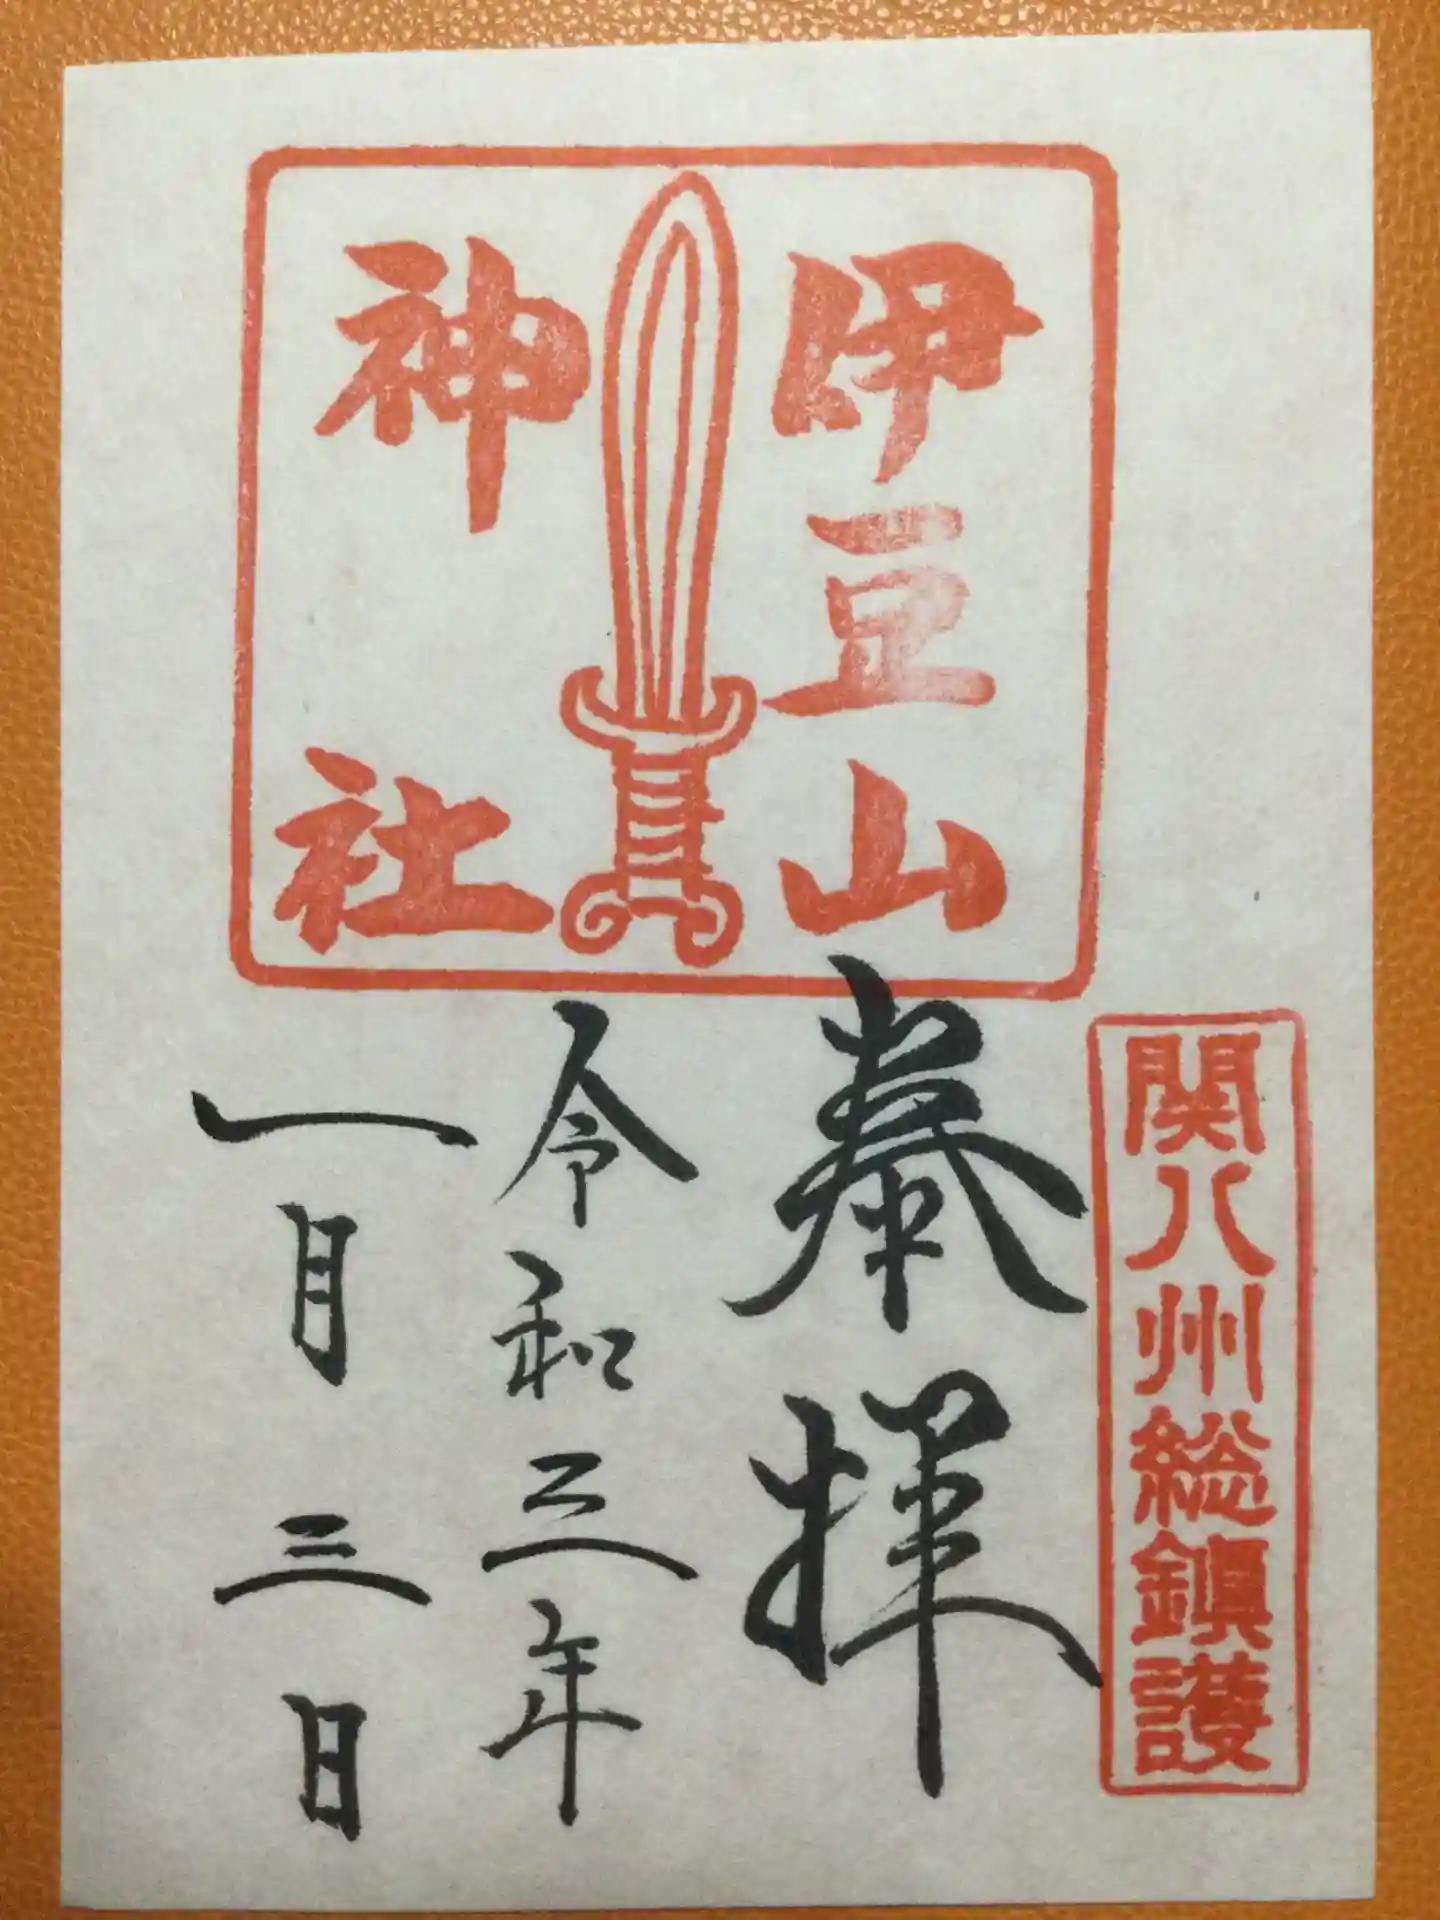 関八州総鎮護
伊豆山
神社
奉拝
令和三年
一月三日